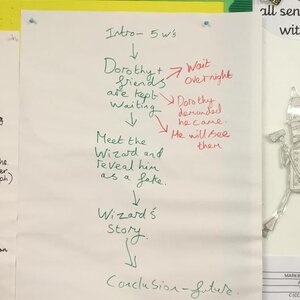 Intro- 5 W's
Dorothy +
friends
are kept
waiting
Wait
overnight
Dorothy
demanded
he came.
He will see
them
Meet the
Wizard and
reveal him
as a fake.
Wizard's
Story.
Conclusion - future.
all sen
wi